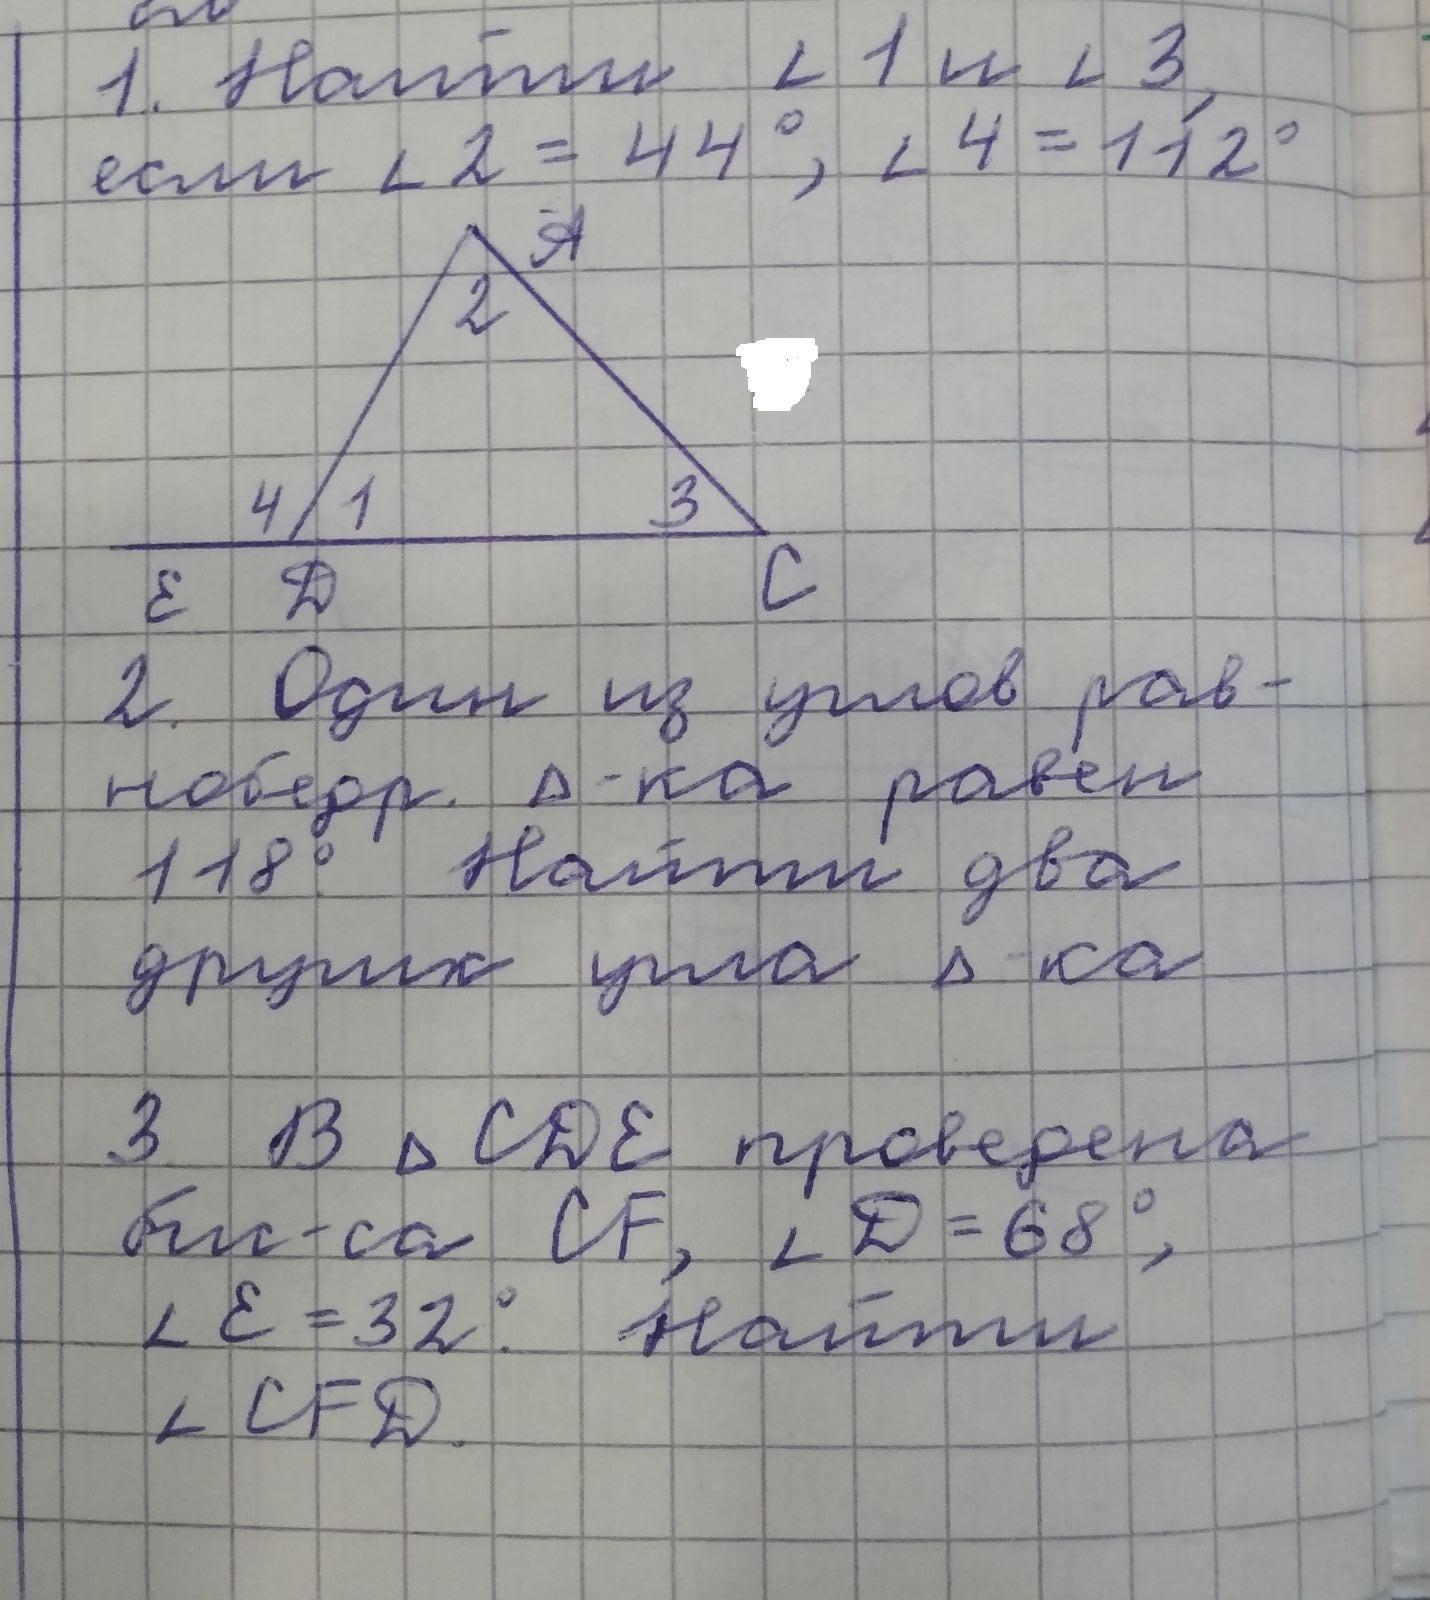 1. Найти ∠1 и ∠3,
если ∠2 = 44°, ∠4 = 112°
A
2
4 1 3
E D C
2. Один из углов рав-
нобедр. Δ-ка равен
118°. Найти два
других угла Δ-ка
3 В Δ CDE проведена
бис-са CF, ∠D = 68°,
∠E = 32°. Найти
∠CFD.